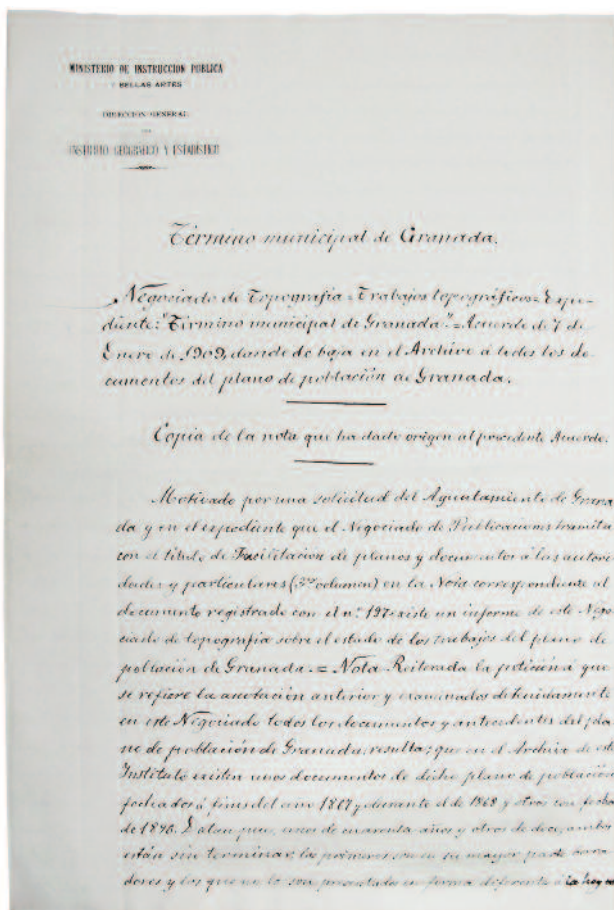 MINISTERIO DE INSTRUCCION PUBLICA
Y BELLAS ARTES
DIRECCION GENERAL
DEL
INSTITUTO GEOGRAFICO Y ESTADISTICO
Término municipal de Granada.
Negociado de Topografia = Trabajos topográficos = Espe-
diente: "Término municipal de Granada" = Acuerdo de 7 de
Enero de 1909, dando de baja en el Archivo á todos los do-
cumentos del plano de población de Granada.
Copia de la nota que ha dado origen al precedente Acuerdo.
Motivado por una solicitud del Ayuntamiento de Grana
da y en el expediente que el Negociado de Publicaciones tramita
con el título de Facilitacion de planos y documentos á las autori
dades y particulares (3er volumen) en la Nota correspondiente al
documento registrado con el n.º 197 existe un informe de este Nego
ciado de topografia sobre el estado de los trabajos del plano de
población de Granada. = Nota Reiterada la petición á que
se refiere la anotación anterior y examinados detenidamente
en este Negociado todos los documentos y antecedentes del pla
no de población de Granada, resulta; que en el Archivo de este
Instituto existen unos documentos de dicho plano de población
fechados á fines del año 1867 y durante el de 1868 y otros con fecha
de 1896. Datan pues, unos de cuarenta años y otros de doce, ambos
están sin terminar, los primeros son en su mayor parte borra
dores y los que no lo son presentados en forma diferente á la hoy en